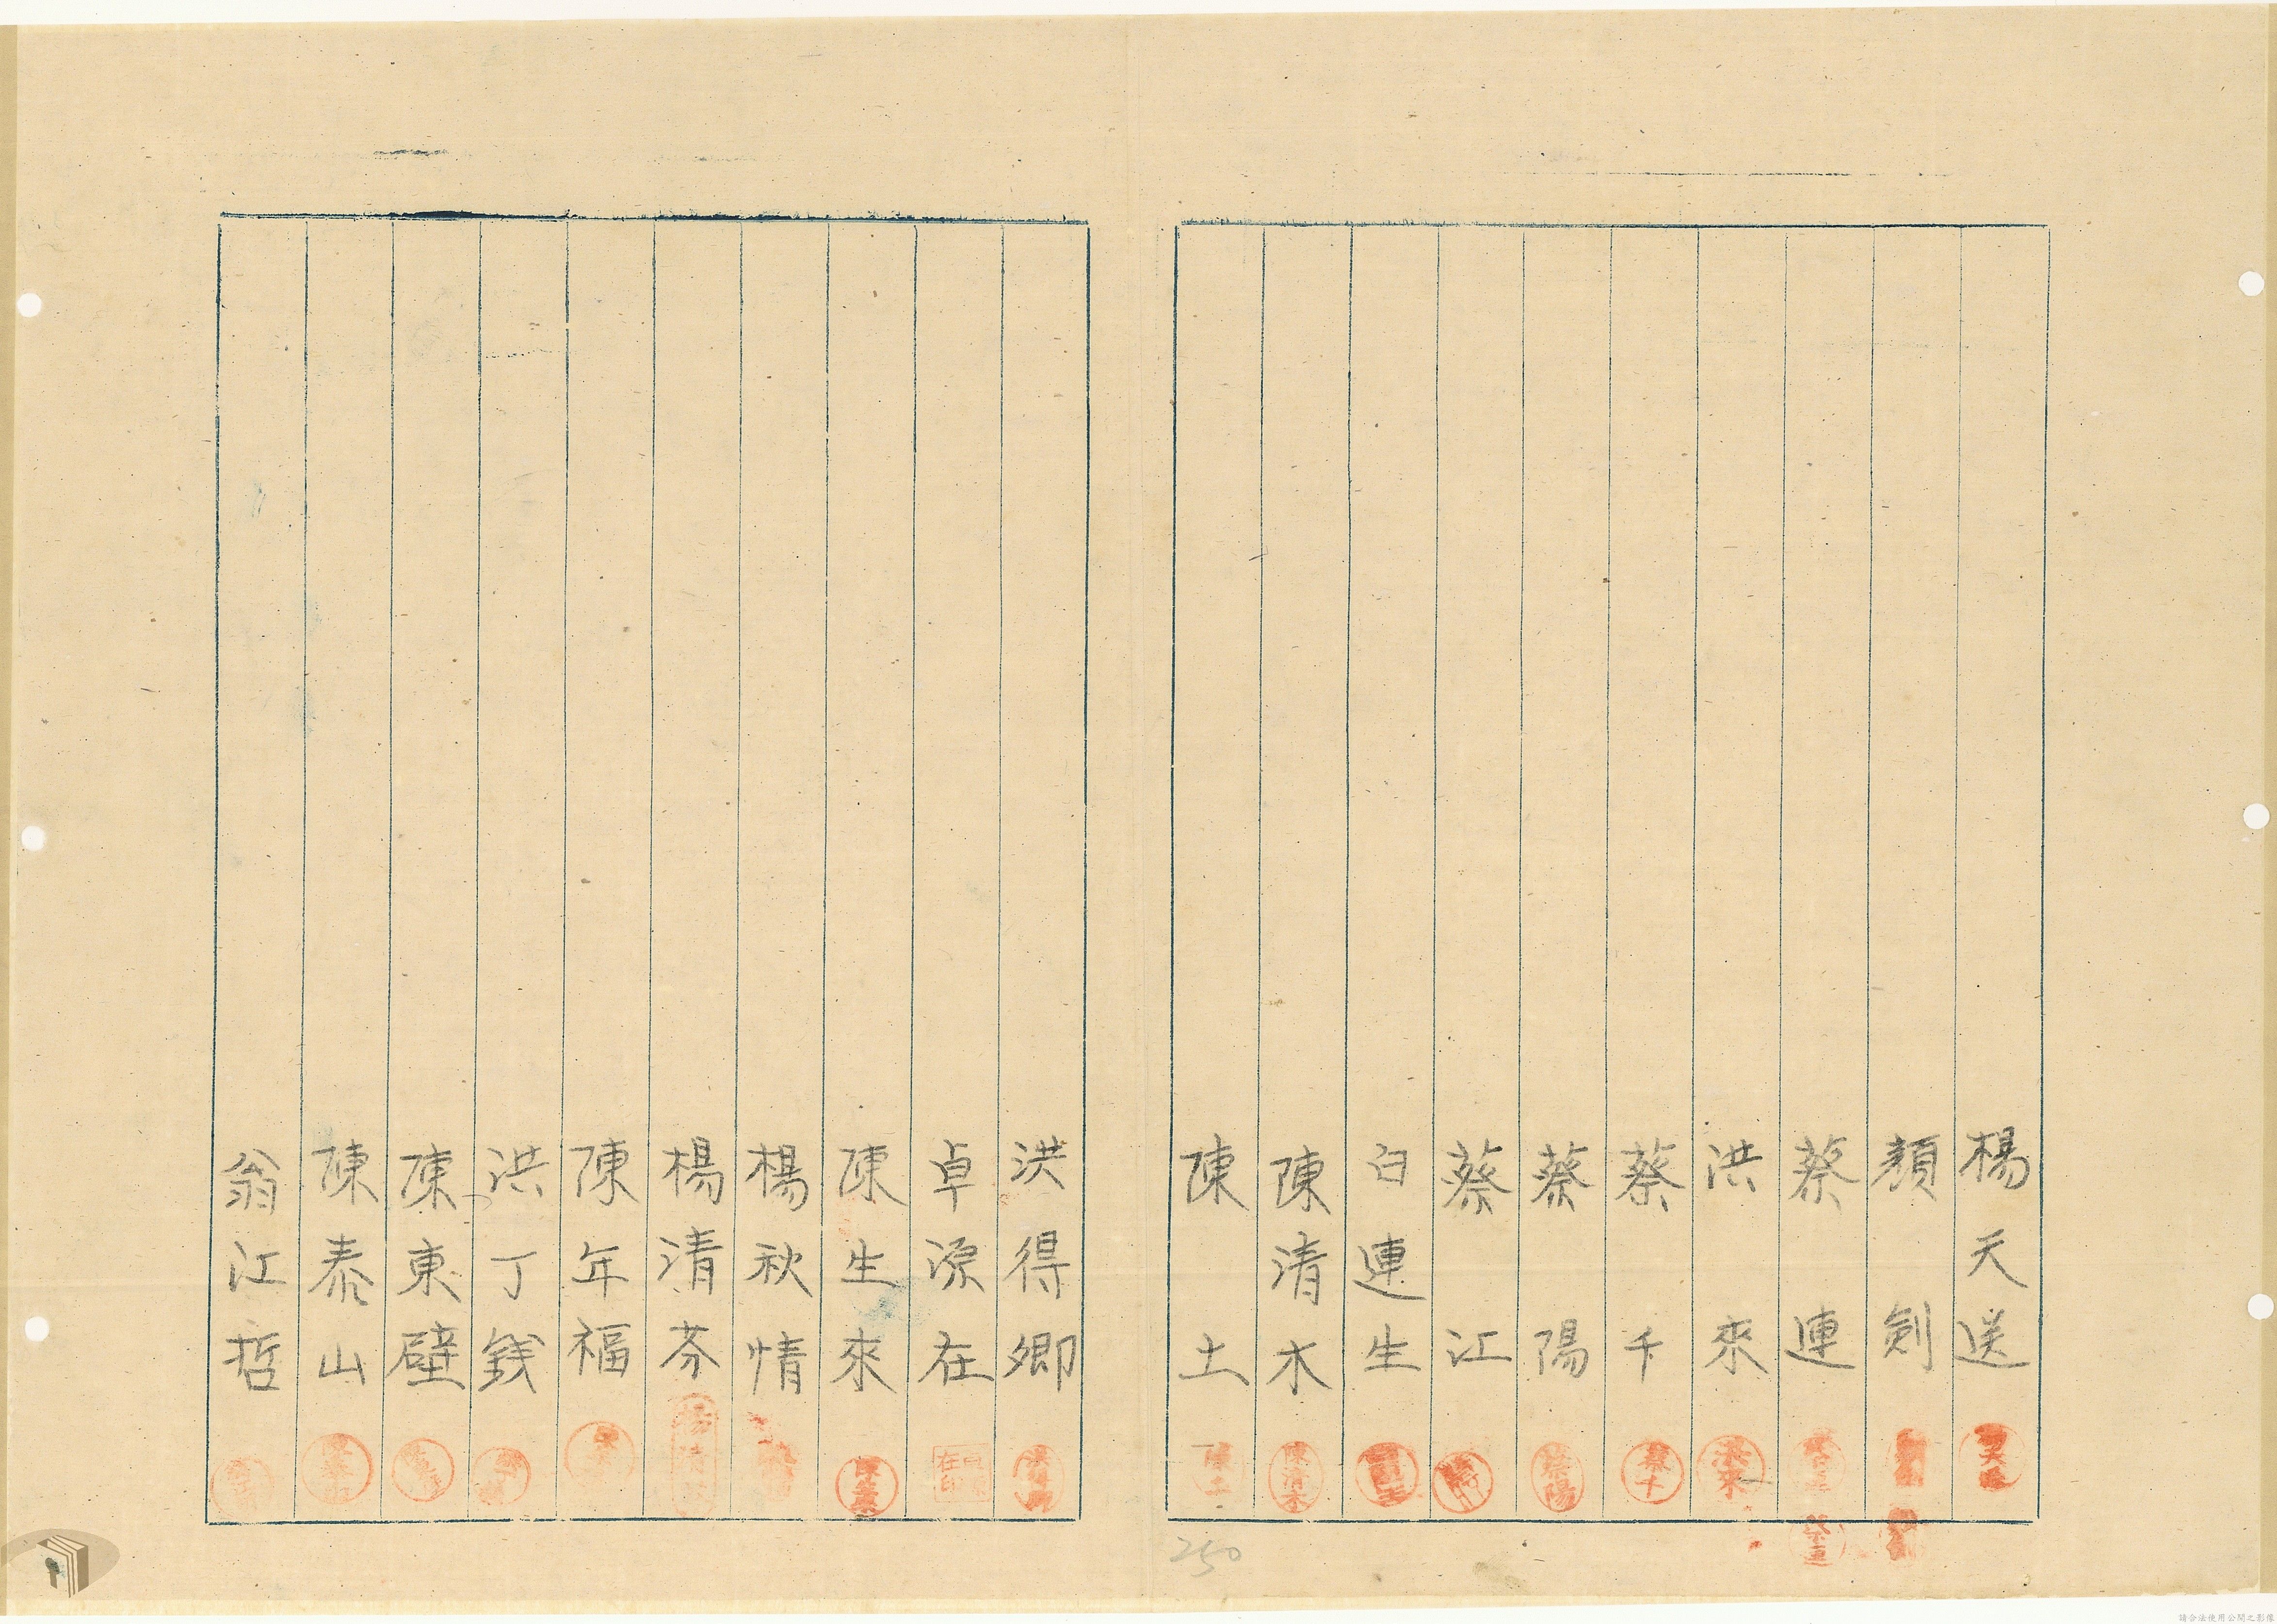 楊天送
顏剣
蔡連
洪來
蔡千
蔡陽
蔡江
白連生
陳清木
陳土
洪得卿
卓源在
陳生來
楊秋情
楊清芬
陳年福
洪丁銭
陳東壁
陳泰山
翁江哲
250
請合法使用公開之影像